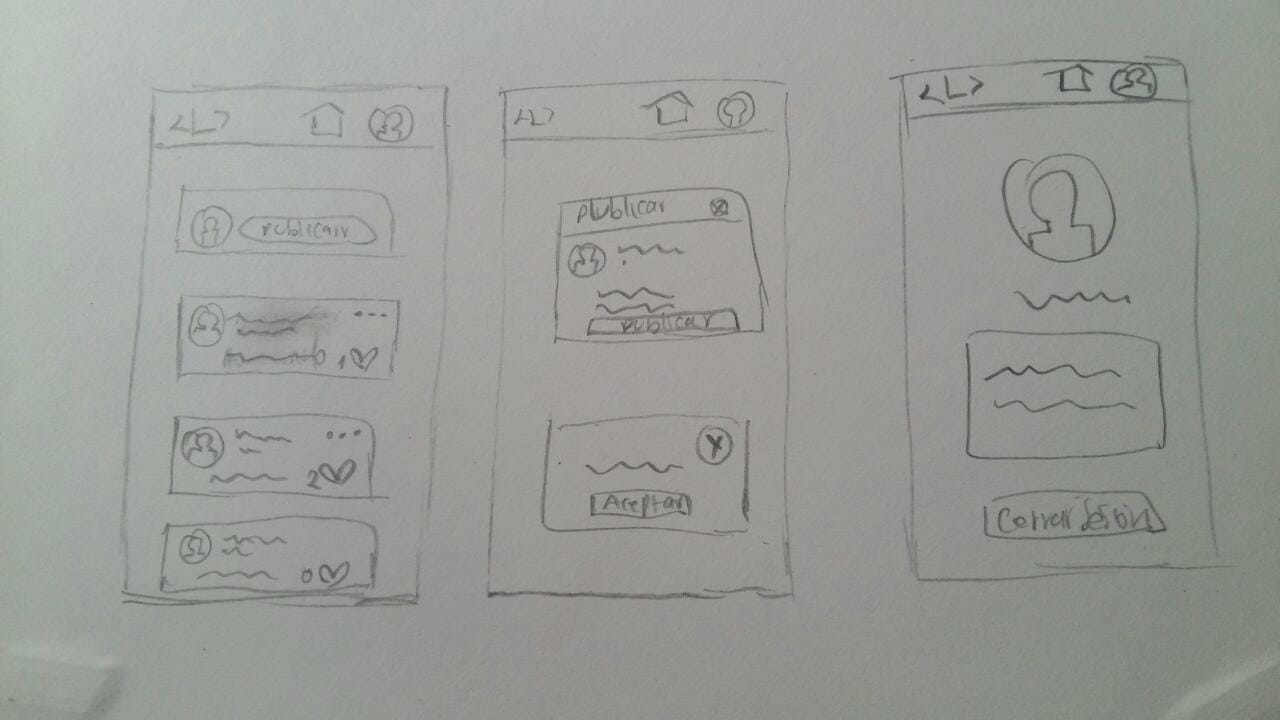 <L>
publicar
...
1
...
2
0
<L>
plublicar
publicar
X
Aceptar
<L>
Cerrar Sesion